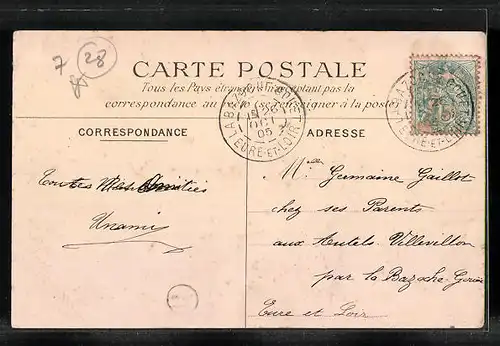 7 28
CARTE POSTALE
Tous les Pays étrangers n'acceptant pas la
correspondance au recto (se renseigner à la poste)
LA BAZOCHE-GOUET
26
05
EURE-ET-LOIR
CORRESPONDANCE
ADRESSE
Toutes Mes Amitiés
Unami
Melle Germaine Gaillot
chez ses Parents
aux Autels Villevillon
par la Bazoche-Gouët
Eure et Loir